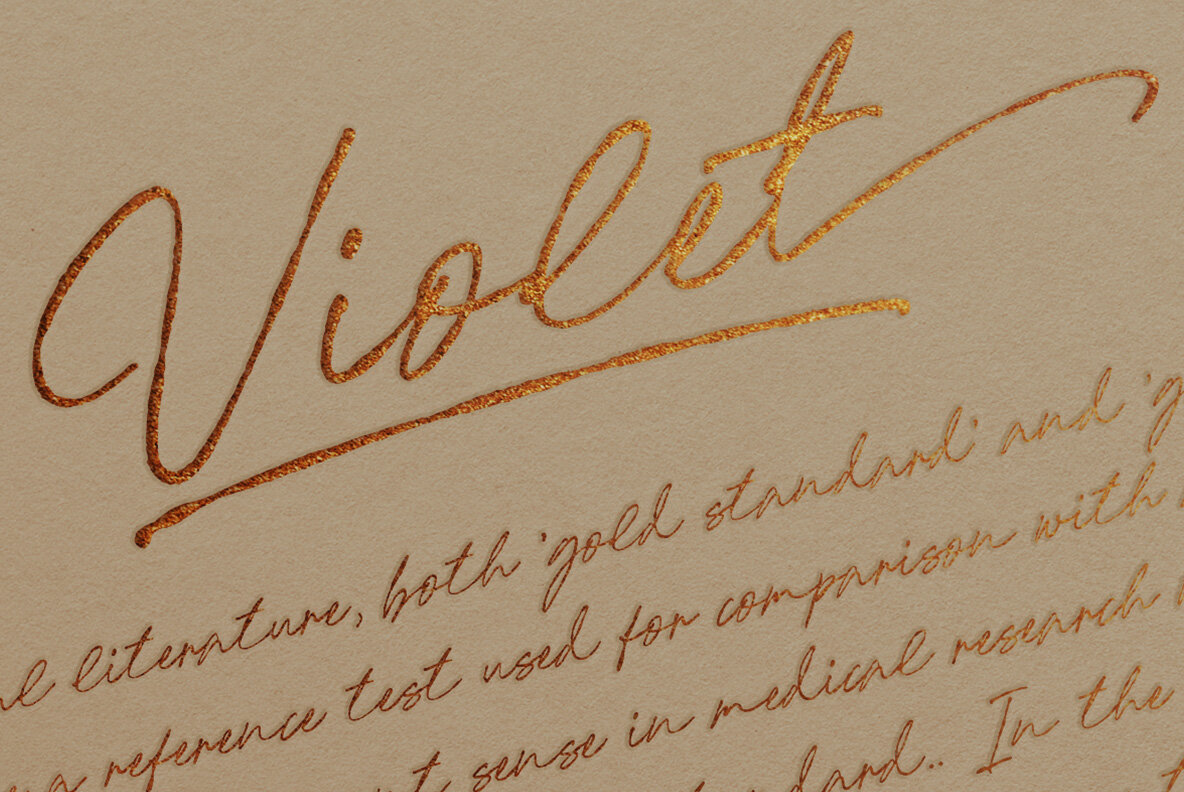 Violet
literature, both 'gold standard' and 'g
a reference test used for comparison with
sense in medical research
In the